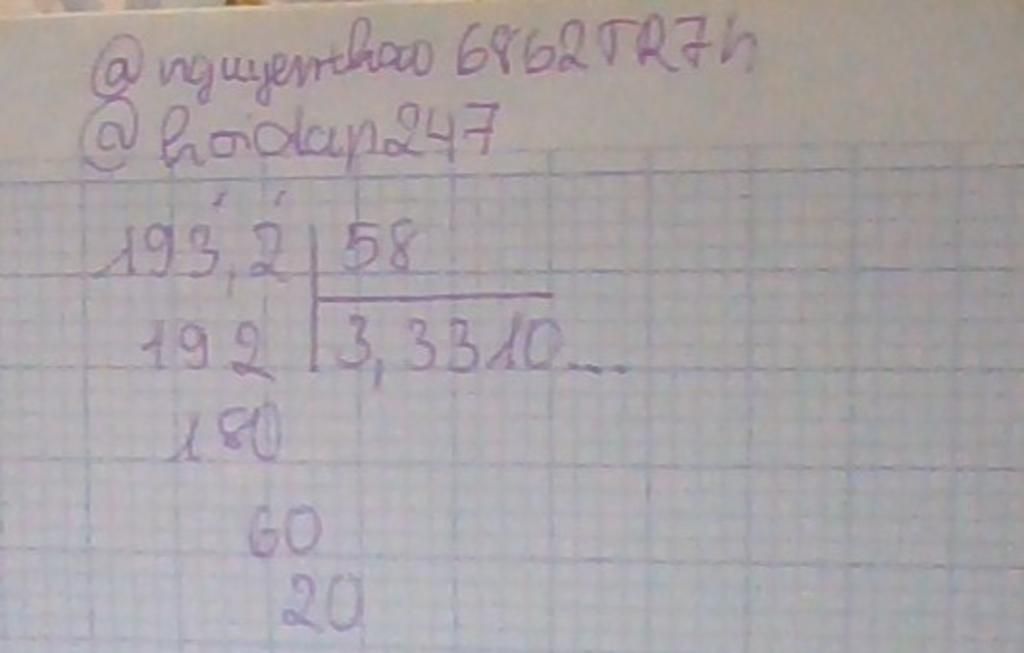 @nguyenthao6862TR7h
@hoidap247
193,2 58
192 3,3310...
180
60
20